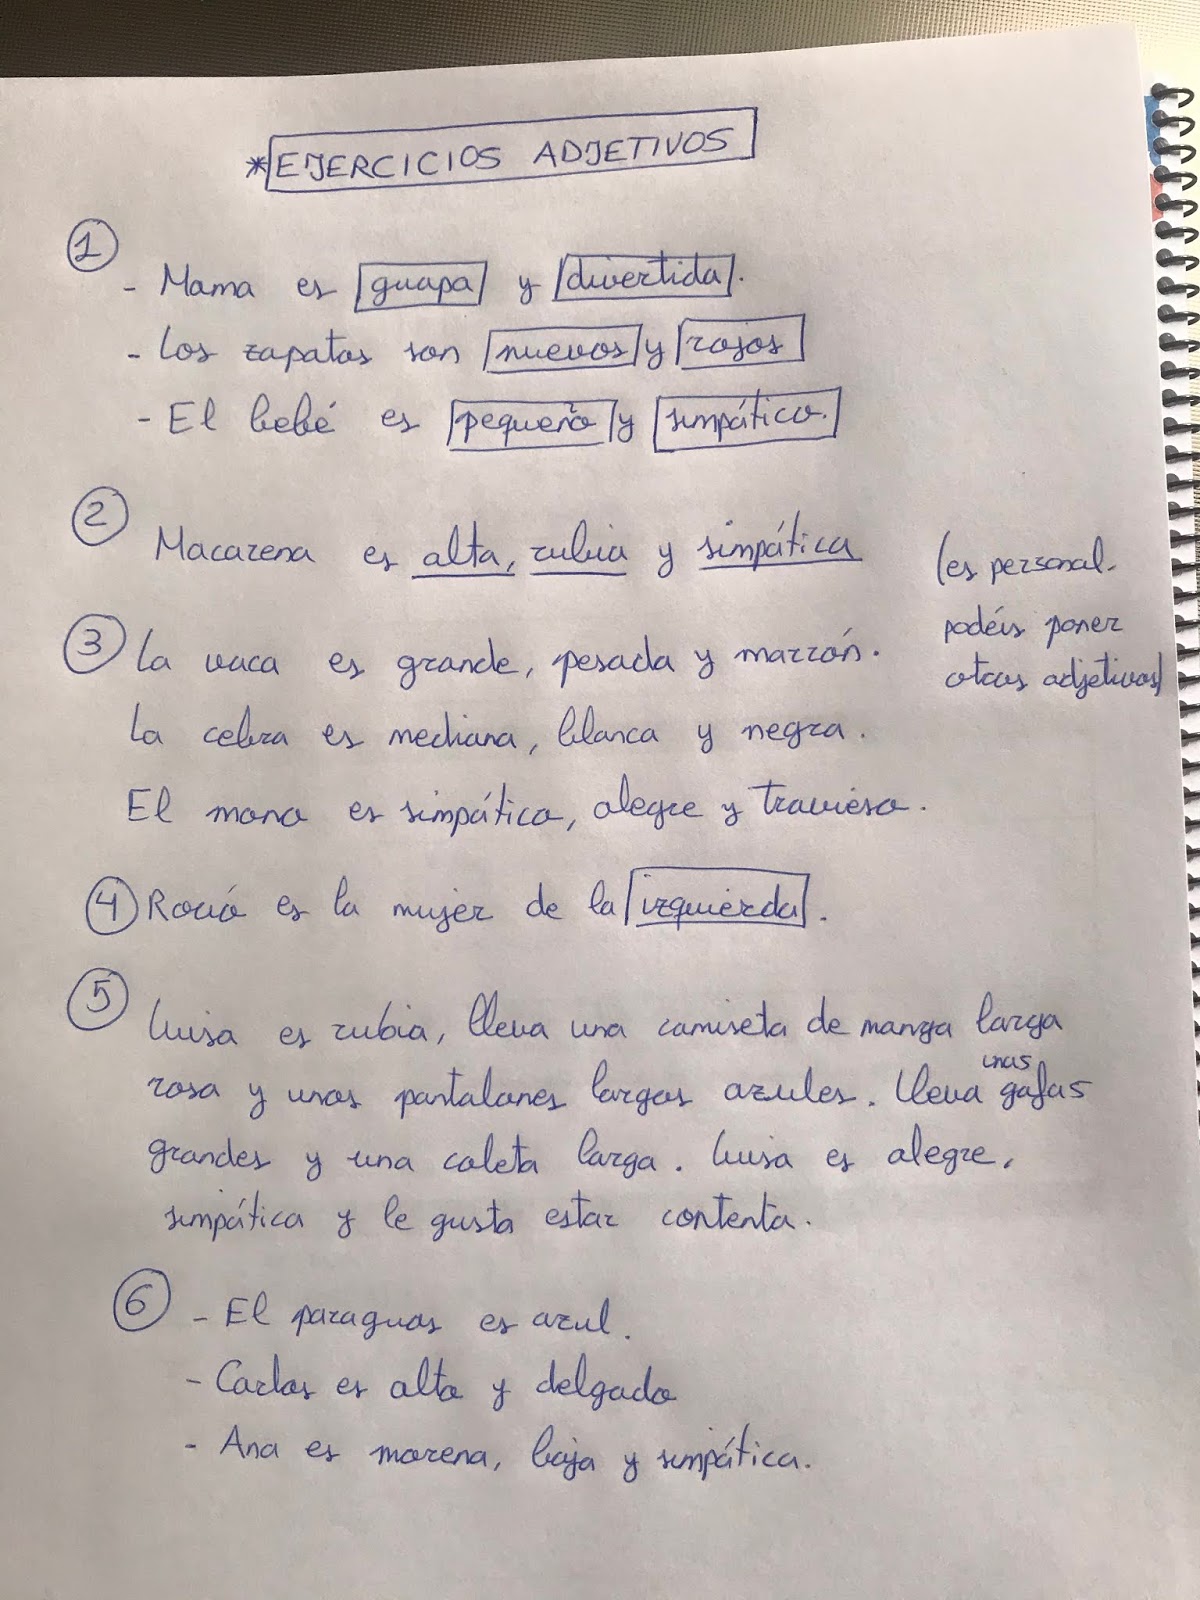 *EJERCICIOS ADJETIVOS
1
- Mama es guapa y divertida.
- Los zapatos son nuevos y rojos
- El bebé es pequeño y simpático.
2 Macarena es alta, rubia y simpática
(es personal.
podéis poner
otros adjetivos)
3 La vaca es grande, pesada y marrón.
La cebra es mediana, blanca y negra.
El mono es simpático, alegre y travieso.
4 Rocío es la mujer de la izquierda.
5 Luisa es rubia, lleva una camiseta de manga larga
rosa y unos pantalones largos azules. Lleva unas gafas
grandes y una coleta larga. Luisa es alegre,
simpática y le gusta estar contenta.
6 - El paraguas es azul.
- Carlos es alto y delgado
- Ana es morena, baja y simpática.